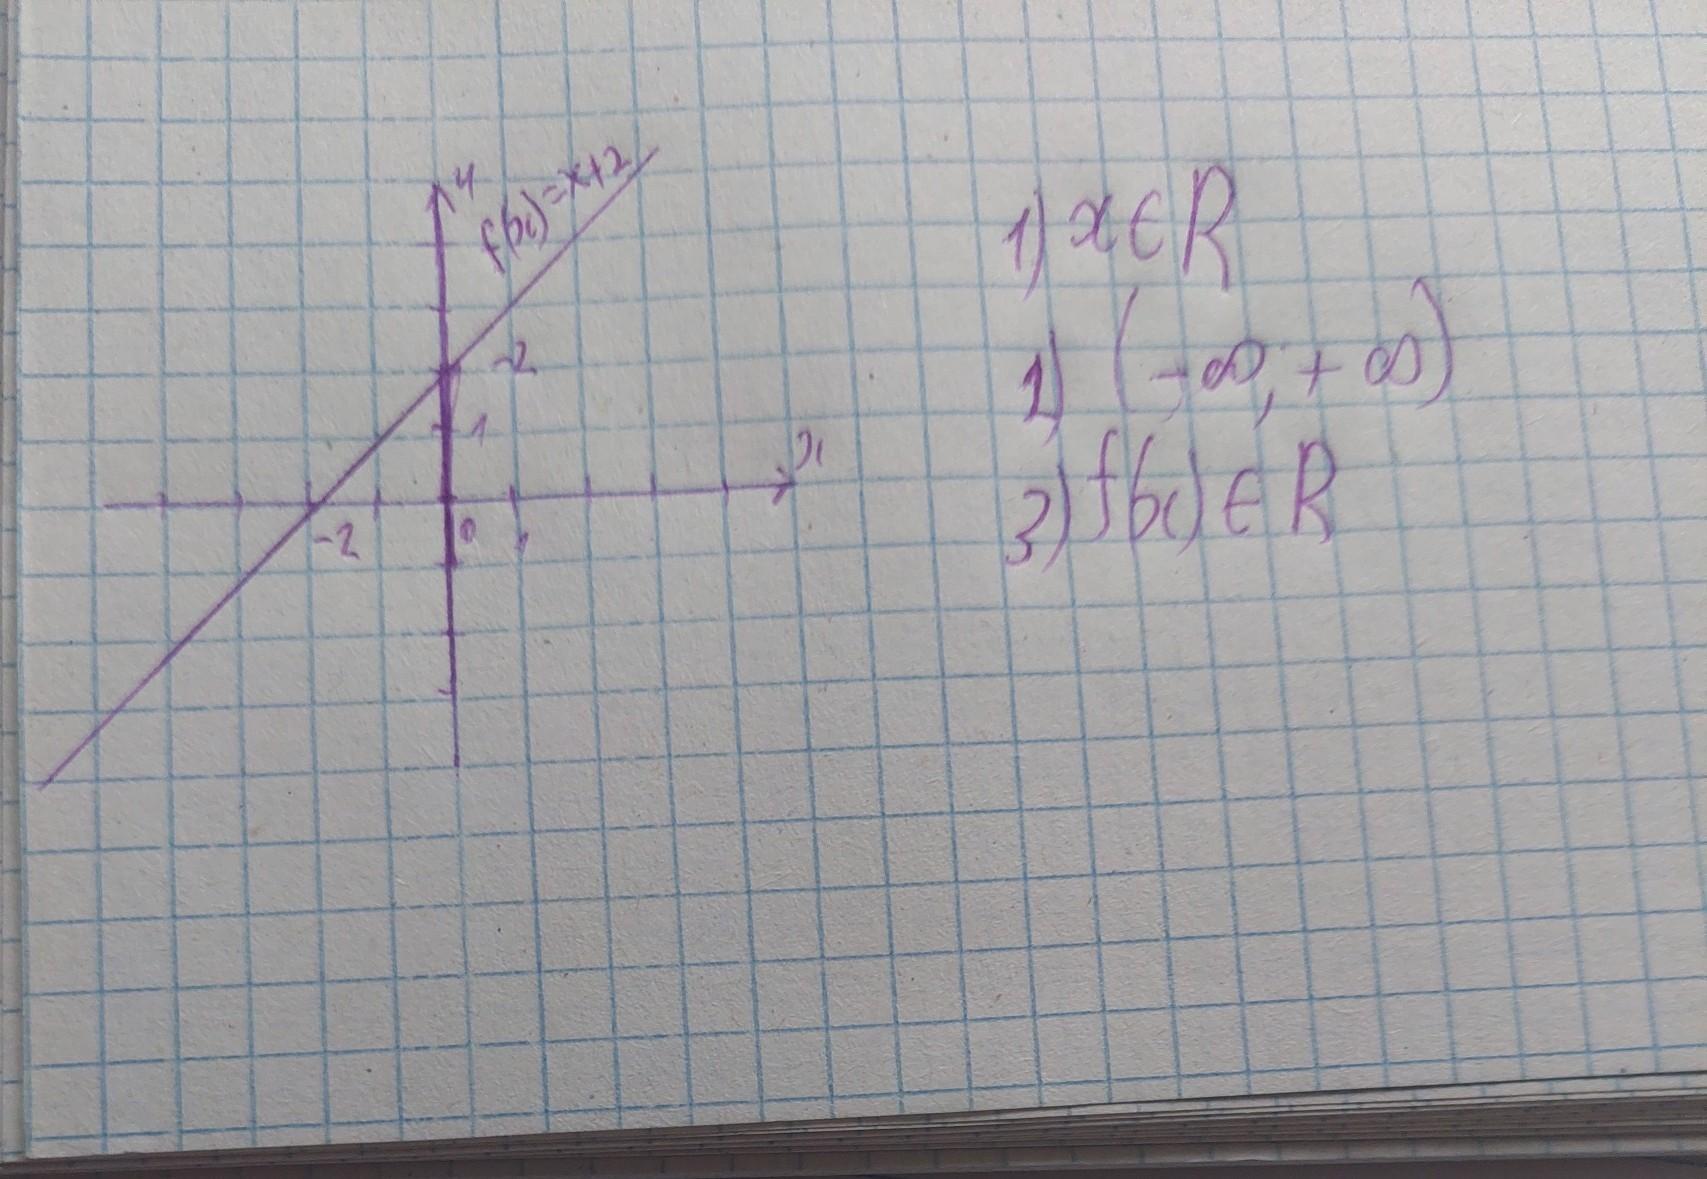 y
f(x)=x+2
-2
1
x
-2
0
1
1) x∈R
2) (-∞,+∞)
3) f(x)∈R